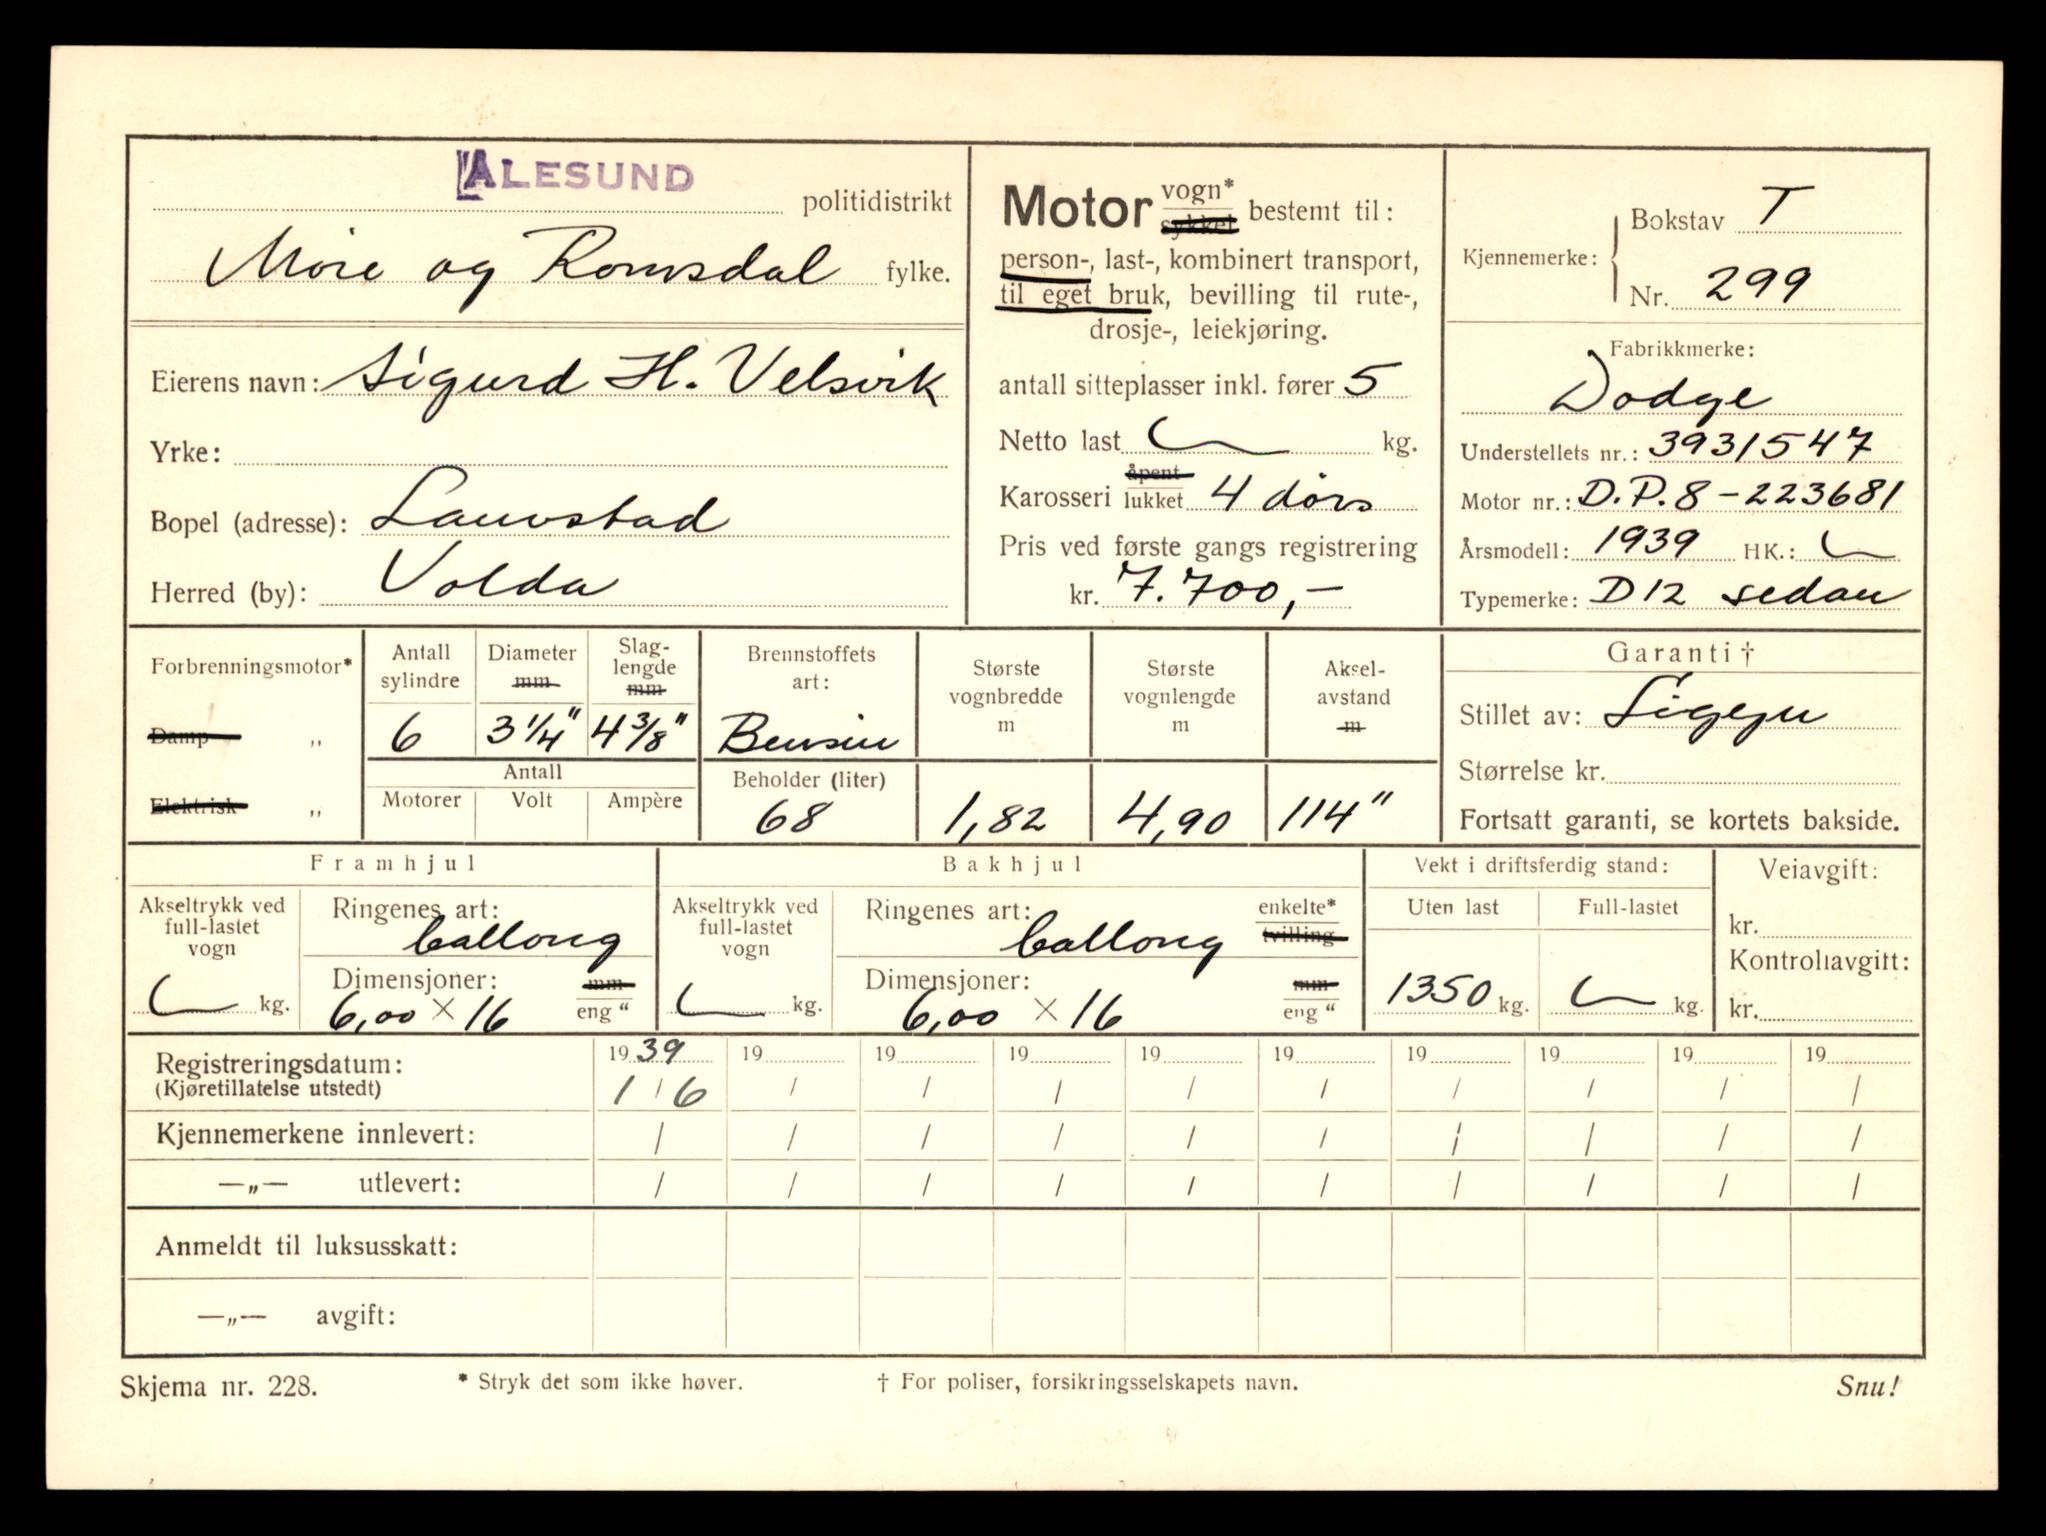 ÅLESUND politidistrikt
Møre og Romsdal fylke.
Eierens navn: Sigurd H. Velsvik
Yrke:
Bopel (adresse): Lauvstad
Herred (by): Volda
Motor vogn* sykkel bestemt til:
person-, last-, kombinert transport,
til eget bruk, bevilling til rute-,
drosje-, leiekjøring.
antall sitteplasser inkl. fører 5
Netto last kg.
Karosseri åpent lukket 4 dørs
Pris ved første gangs registrering
kr. 7.700,-
Kjennemerke: Bokstav T
Nr. 299
Fabrikkmerke:
Dodge
Understellets nr.: 3931547
Motor nr.: D.P.8-223681
Årsmodell: 1939 HK.:
Typemerke: D12 sedan
Forbrenningsmotor*
Damp "
Elektrisk "
Antall sylindre
6
Diameter mm
3 1/4"
Slaglengde mm
4 3/8"
Antall
Motorer Volt Ampère
Brennstoffets art:
Bensin
Beholder (liter)
68
Største vognbredde m
1,82
Største vognlengde m
4,90
Akselavstand m
114"
Garanti †
Stillet av:
Størrelse kr.
Fortsatt garanti, se kortets bakside.
Framhjul
Akseltrykk ved
full-lastet
vogn
kg.
Ringenes art:
ballong
Dimensjoner: mm
6,00 × 16 eng "
Bakhjul
Akseltrykk ved
full-lastet
vogn
kg.
Ringenes art: enkelte*
ballong tvilling
Dimensjoner: mm
6,00 × 16 eng "
Vekt i driftsferdig stand:
Uten last Full-lastet
1350 kg. kg.
Veiavgift:
kr.
Kontrollavgift:
kr.
Registreringsdatum: 1939 19 19 19 19 19 19 19 19 19
(Kjøretillatelse utstedt) 1/6 / / / / / / / / /
Kjennemerkene innlevert: / / / / / / / / / /
—„— utlevert: / / / / / / / / / /
Anmeldt til luksusskatt:
—„— avgift:
Skjema nr. 228. * Stryk det som ikke høver. † For poliser, forsikringsselskapets navn. Snu!